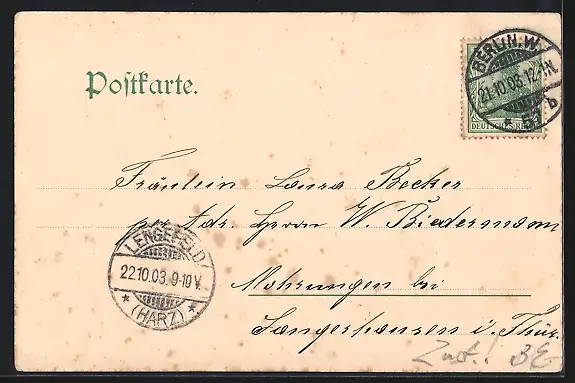 Postkarte.
BERLIN.W.
21.10.03.12-1N.
* 57 b
DEUTSCHES REICH
Fräulein Laura Becker
per Adr. Herrn W. Biedermann
Mohrungen bei
Sangerhausen i. Thür.
LENGEFELD
22.10.03.9-10V.
* (HARZ) *